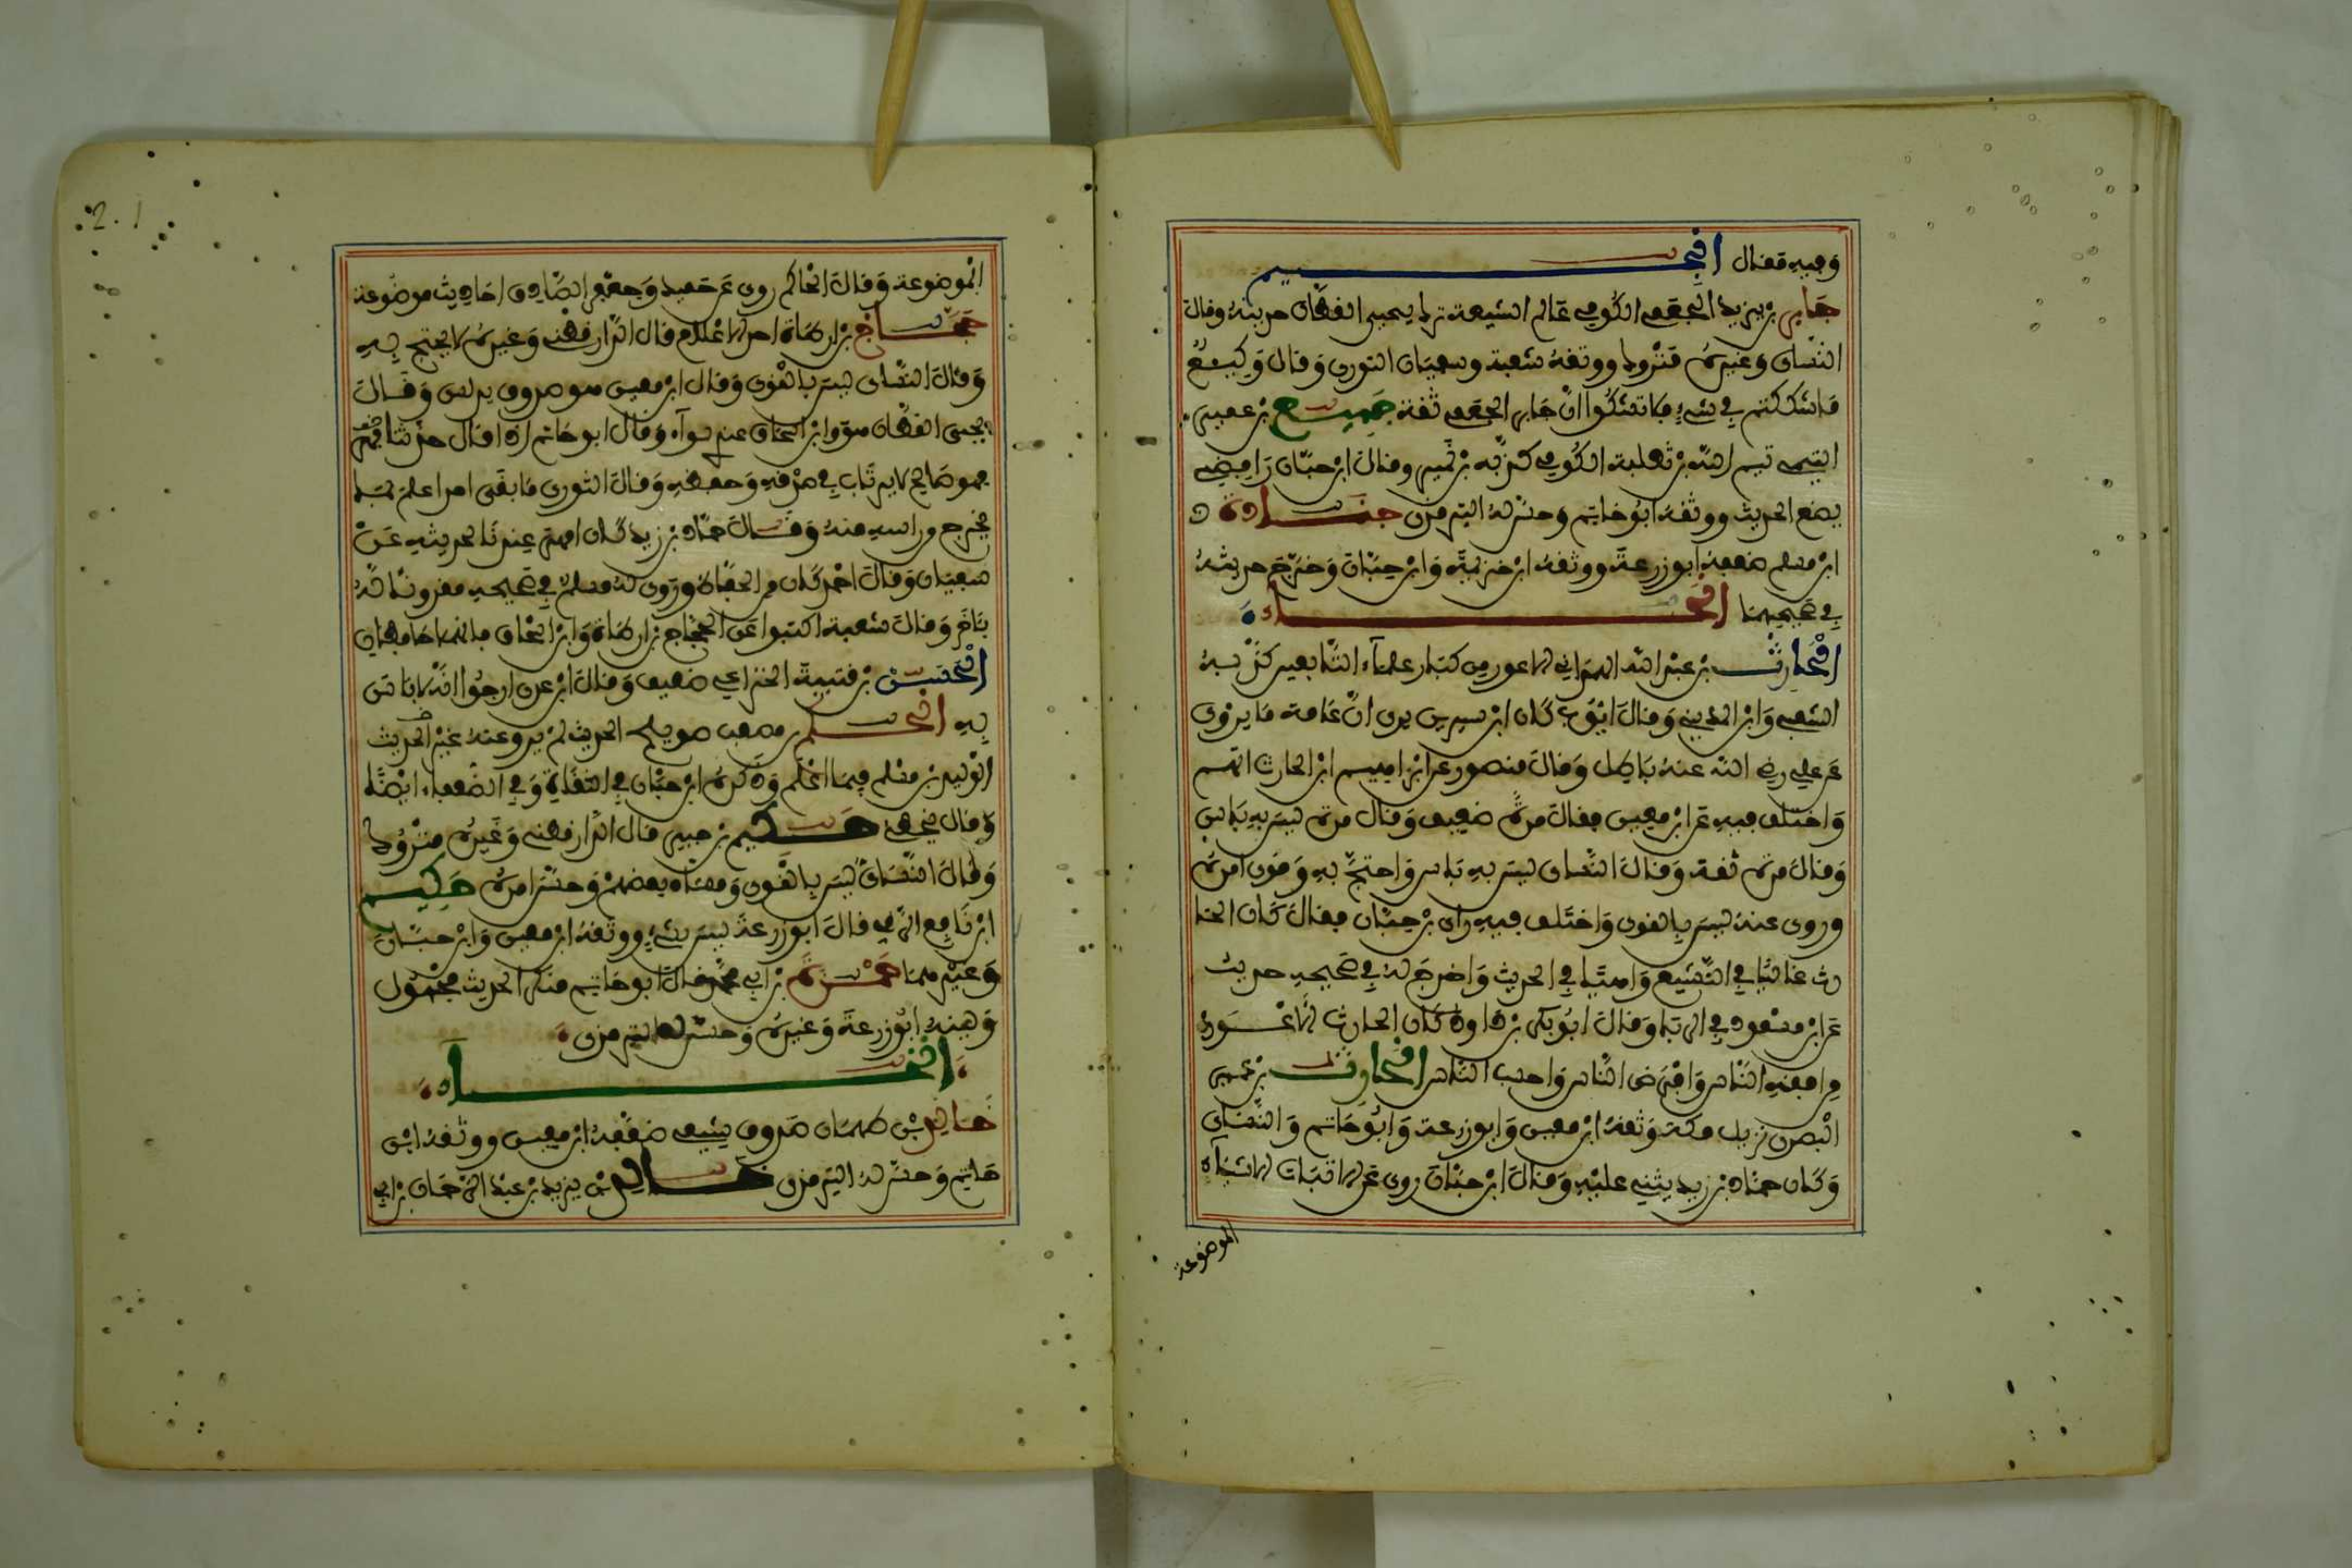 وفيه مقال الجيم
جابر بن يزيد الجعفي الكوفي عالم الشيعة ترك يحيى القطان حديثه وقال
النسائي وغيره متروك ووثقه شعبة وسفيان الثوري وقال وكيع
ما شككتم في شيء فلا تشكوا ان جابر الجعفي ثقة جميع بن عمير
التيمي تيم الله بن ثعلبة الكوفي كذبه بن نمير وقال ابن حبان رافضي
يضع الحديث ووثقه ابو حاتم وحسن له الترمذي جنادة
ابن مسلم ضعفه ابو زرعة ووثقه ابن خزيمة وابن حبان وخرج حديثه
في صحيحهما الحاء
الحارث بن عبد الله الهمداني الاعور من كبار علماء التابعين كذبه
الشعبي وابن المديني وقال ايوب كان ابن سيرين يرى ان عامة ما يروى
عن علي رضي الله عنه باطل وقال منصور عن ابراهيم ان الحارث اتهم
واختلف فيه عن ابن معين فقال مرة ضعيف وقال مرة ليس به باس
وقال مرة ثقة وقال النسائي ليس به باس واحتج به وقوى امره
وروى عنه ليس بالقوي واختلف فيه راي بن حبان فقال كان الحا
رث غاليا في التشيع واهيا في الحديث واخرج له في صحيحه حديث
عن ابن مسعود في الربا وقال ابو بكر بن ابي داود كان الحارث الاعور
من افقه الناس وافرض الناس واحسب الناس الحارث بن عمير
البصري نزيل مكة وثقه ابن معين وابو زرعة وابو حاتم والنسائي
وكان حماد بن زيد يثني عليه وقال ابن حبان روى عن الاثبات الاشياء
الموضوعة
الموضوعة وقال الحاكم روى عن حميد وجعفر الصادق احاديث موضوعة
حجاج بن ارطاة احد الاعلام قال الدارقطني وغيره لا يحتج به
وقال النسائي ليس بالقوي وقال ابن معين هو صدوق يدلس وقال
يحيى القطان هو وابن اسحاق عندي سواء وقال ابو حاتم اذا قال حدثنا
فهو صالح لا يرتاب في صدقه وحفظه وقال الثوري ما بقي احد اعلم بما
يخرج من راسه منه وقال حماد بن زيد كان افهم عندنا لحديثه من
سفيان وقال احمد كان من الحفاظ وروى له مسلم في صحيحه مقرونا له
باخر وقال شعبة اكتبوا عن الحجاج بن ارطاة وابن اسحاق فانهما حافظان
الحسن بن قتيبة الخزاعي ضعيف وقال ابن عدي ارجوا انه لا باس
به الحكم بن مصعب صويلح الحديث لم يرو عنه غير
الوليد بن مسلم فيما اعلم وذكره ابن حبان في الثقات وفي الضعفاء ايضا
وقال يخطئ حكيم بن جبير قال الدارقطني وغيره متروك
وقال النسائي ليس بالقوي ومشاه بعضهم وحسن امره حكيم
ابن نافع الرقي قال ابو زرعة ليس بشيء ووثقه ابن معين وابن حبان
وغيرهما حمزة بن ابي محمد قال ابو حاتم منكر الحديث مجهول
وهنه ابو زرعة وغيره وحسن له الترمذي
الخاء
خالد بن طهمان صدوق شيعي ضعفه ابن معين ووثقه ابن
حاتم وحسن له الترمذي خالد بن يزيد بن عبد الرحمان بن ابي